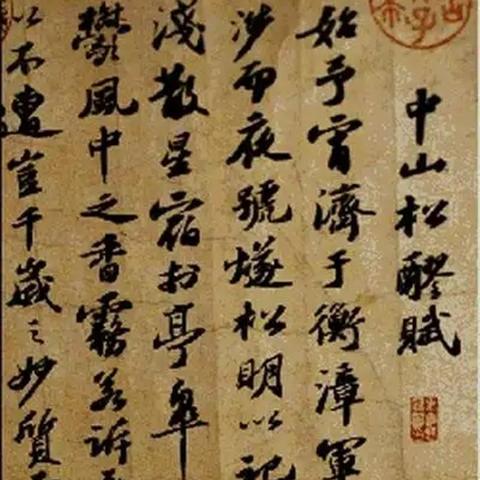 中山松醪賦
始予宵濟于衡漳軍
涉而夜號燧松明以記
淺散星宿於亭皋
鬱風中之香霧若訴
以不遭豈千歲之妙質